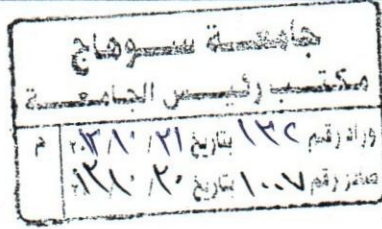 جامعة سوهاج
مكتب رئيس الجامعة
وارد رقم ١٣٢ بتاريخ ٢١/١٠/
صادر رقم ١٠٠٧ بتاريخ ٢٠/١٠/
م